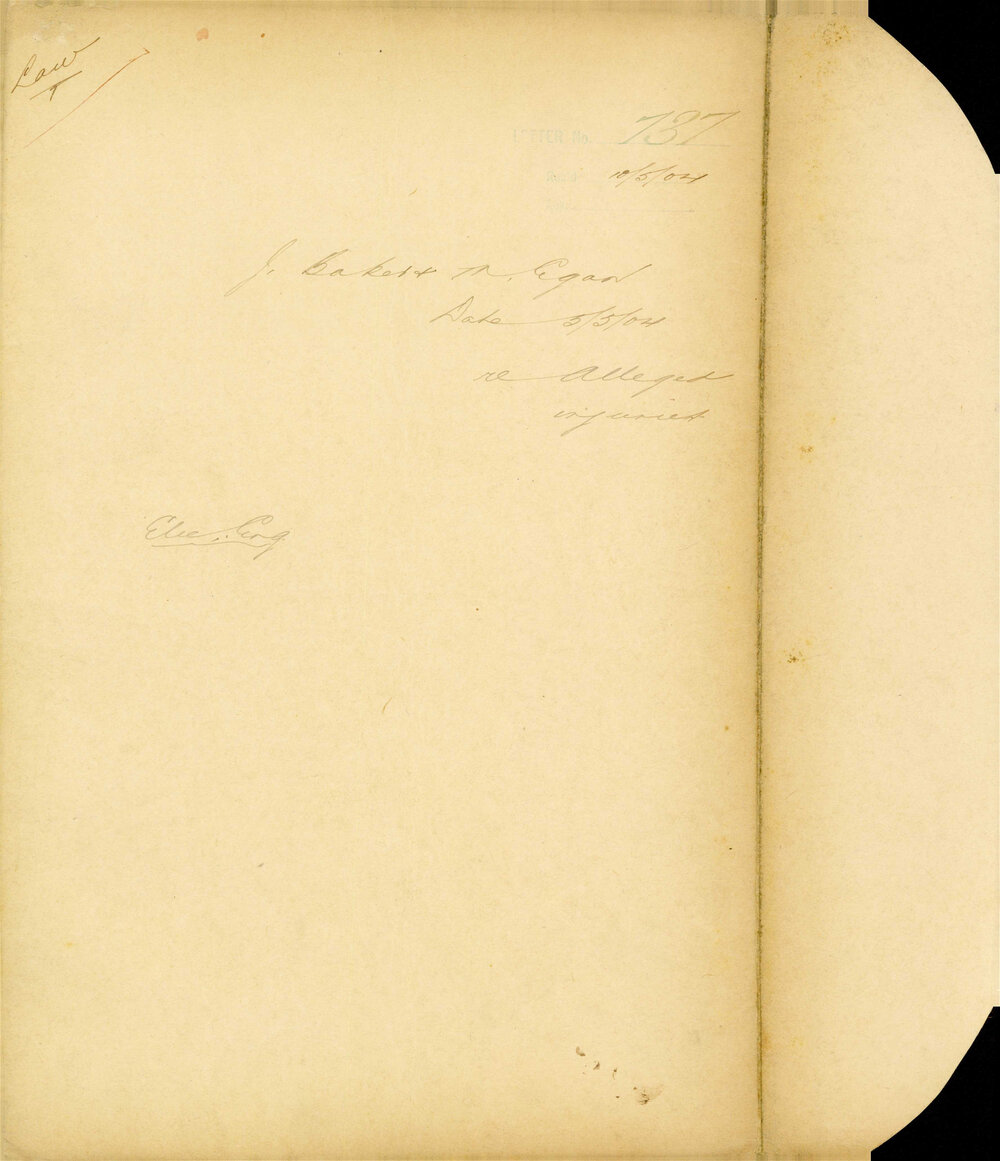 Law
737
10/5/04
J. Baker & M. Egan
Date 5/5/04
re Alleged
injuries
Elec. Eng